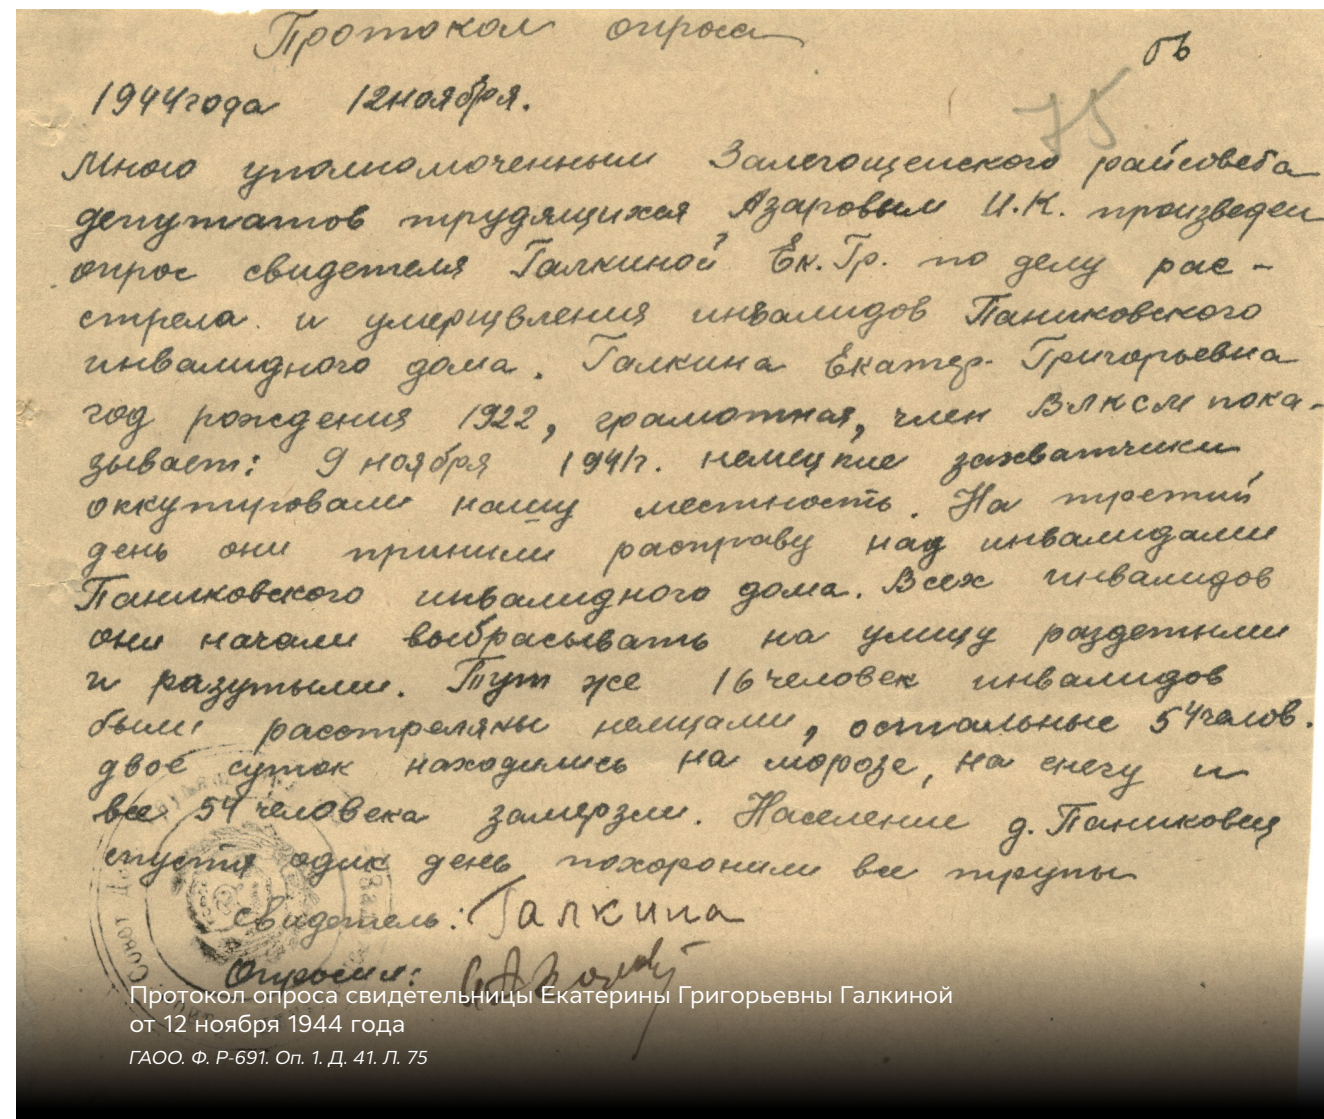 Протокол опроса
бъ
1944 года 12 ноября.
75
Мною уполномоченным Залегощенского райсовета
депутатов трудящихся Азаровым И.К. произведен
опрос свидетеля Галкиной Ек. Гр. по делу рас-
стрела и умерщвления инвалидов Паниковского
инвалидного дома. Галкина Екатер. Григорьевна
год рождения 1922, грамотная, член ВЛКСМ пока-
зывает: 9 ноября 1941г. немецкие захватчики
оккупировали нашу местность. На третий
день они чинили расправу над инвалидами
Паниковского инвалидного дома. Всех инвалидов
они начали выбрасывать на улицу раздетыми
и разутыми. Тут же 16 человек инвалидов
были расстреляны немцами, остальные 54 челов.
двое суток находились на морозе, на снегу и
все 54 человека замерзли. Население д. Паниковец
спустя один день похоронили все трупы
Свидетель: Галкина
Опросил:
Протокол опроса свидетельницы Екатерины Григорьевны Галкиной
от 12 ноября 1944 года
ГАОО. Ф. Р-691. Оп. 1. Д. 41. Л. 75